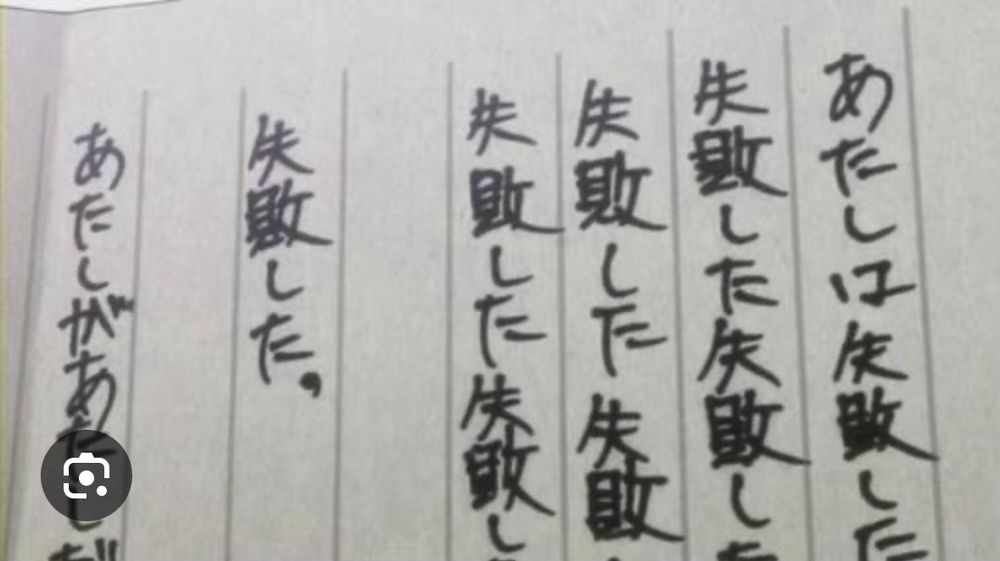 あたしは失敗した
失敗した失敗した
失敗した失敗
失敗した失敗し
失敗した。
あたしがあたしだ